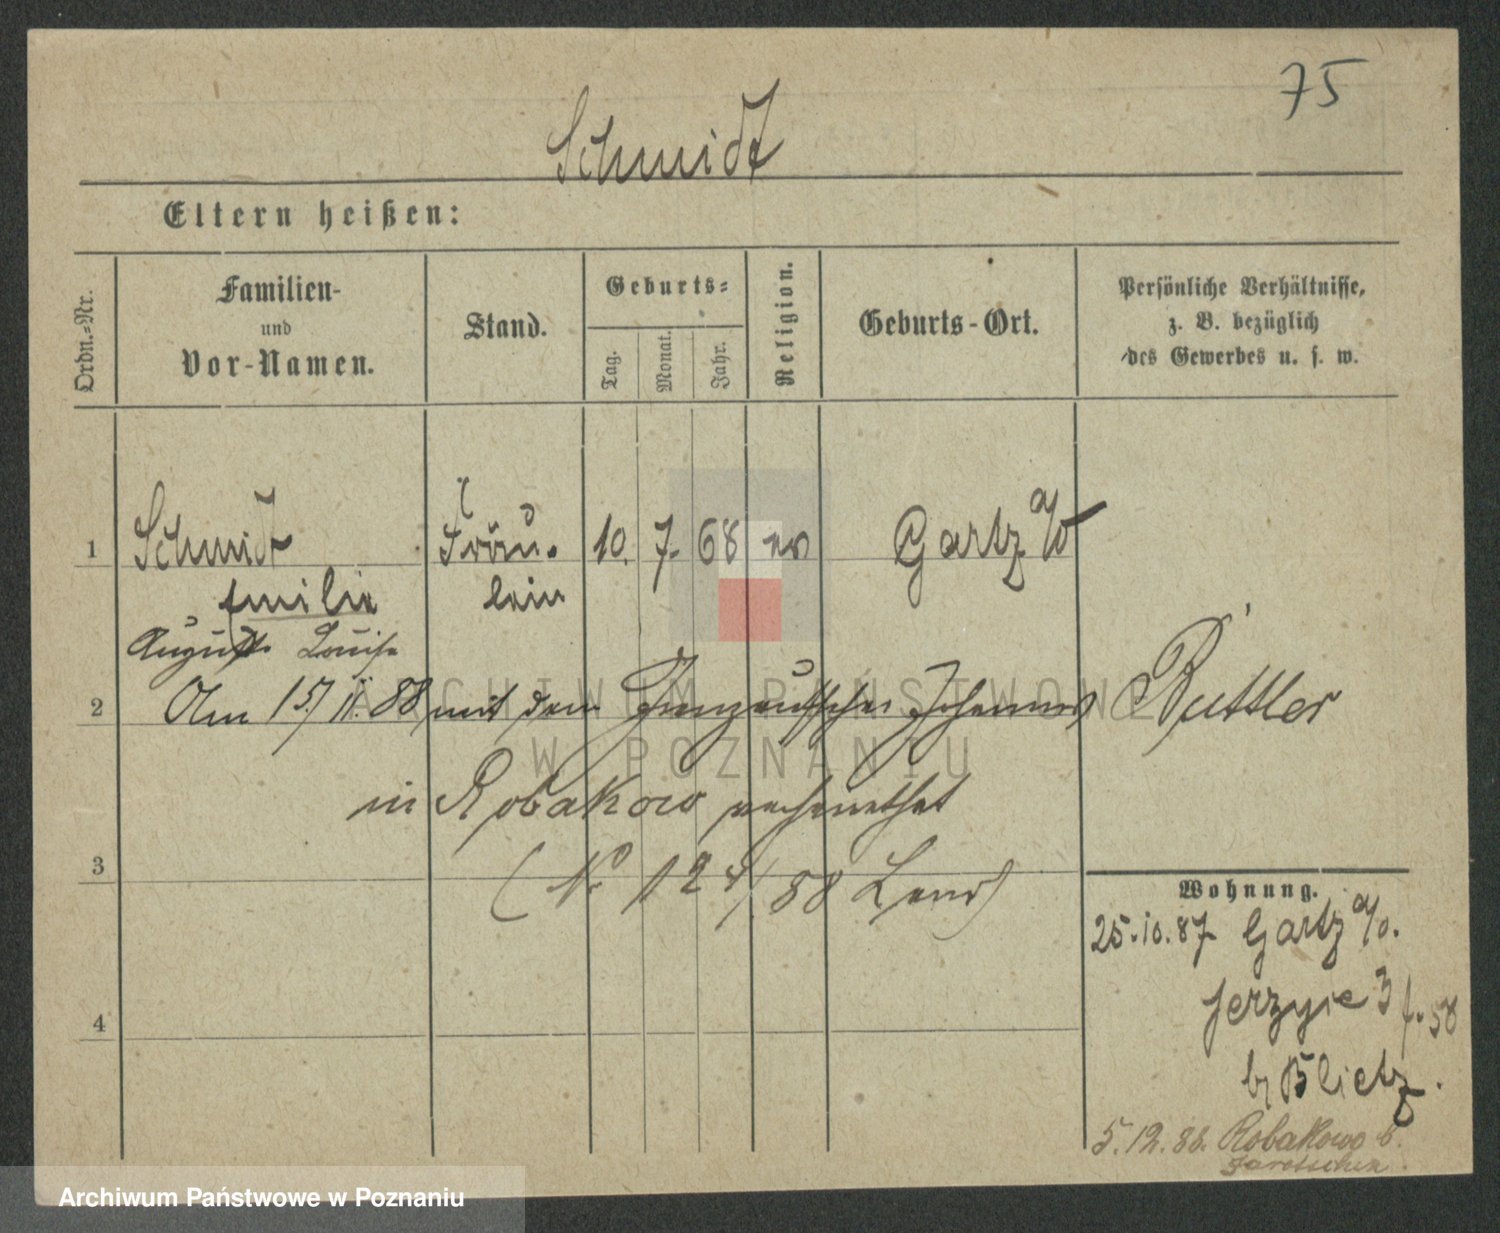 75
Schmidt
Eltern heißen:
Ordn.-Nr.
Familien-
und
Vor-Namen.
Stand.
Geburts-
Tag.
Monat.
Jahr.
Religion.
Geburts-Ort.
Persönliche Verhältnisse,
z. B. bezüglich
des Gewerbes u. s. w.
1 Schmidt Fräu- 10. 7. 68 ev Gartz a/O
Emilie lein
Auguste Louise
2 Am 15/11. 88 mit dem Johannes Buttler
in Robakowo verheirathet
3 (No 124/88
Wohnung.
25.10.87 Gartz a/O.
Jerzyce 3 f. 58
4
b/ Blietz.
5.12.88. Robakowo b.
ARCHIWUM PAŃSTWOWE
W POZNANIU
Archiwum Państwowe w Poznaniu